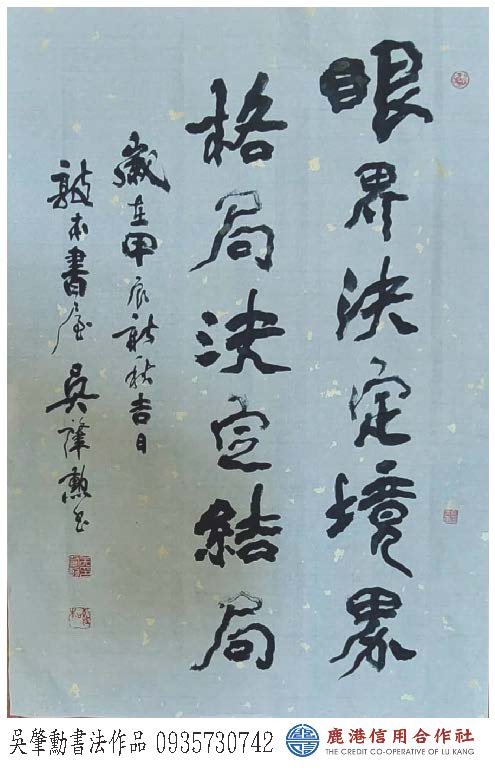 眼界決定境界
格局決定結局
歲在甲辰新秋吉日
敲本書屋 吳肇勳書
吳肇勳書法作品 0935730742
鹿港信用合作社
THE CREDIT CO-OPERATIVE OF LU KANG